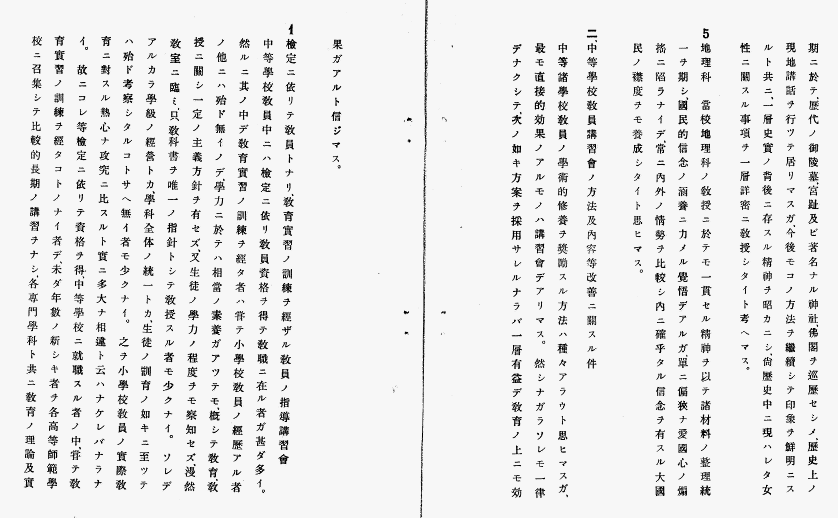 期ニ於テ、歷代ノ御陵墓、宮趾及ビ著名ナル神社、佛閣ヲ巡歷セシメ、歷史上ノ
現地講話ヲ行ツテ居リマスガ、今後モコノ方法ヲ繼續シテ印象ヲ鮮明ニス
ルト共ニ、一層史實ノ背後ニ存スル精神ヲ昭カニシ、尙歷史中ニ現ハレタ女
性ニ關スル事項ヲ一層詳密ニ敎授シタイト考ヘマス。
5 地理科 當校地理科ノ敎授ニ於テモ一貫セル精神ヲ以テ諸材料ノ整理統
一ヲ期シ、國民的信念ノ涵養ニ力メル覺悟デアルガ、單ニ偏狹ナ愛國心ノ煽
揚ニ陷ラナイデ、常ニ內外ノ情勢ヲ比較シ內ニ確乎タル信念ヲ有スル大國
民ノ襟度ヲモ養成シタイト思ヒマス。
二、中等學校敎員講習會ノ方法及內容等改善ニ關スル件
中等諸學校敎員ノ學術的修養ヲ奬勵スル方法ハ種々アラウト思ヒマスガ、
最モ直接的効果ノアルモノハ講習會デアリマス。然シナガラソレモ一律
デナクシテ、次ノ如キ方案ヲ採用サレルナラバ一層有益デ敎育ノ上ニモ効
果ガアルト信ジマス。
1 檢定ニ依リテ敎員トナリ、敎育實習ノ訓練ヲ經ザル敎員ノ指導講習會
中等學校敎員中ニハ檢定ニ依リ敎員資格ヲ得テ敎職ニ在ル者ガ甚ダ多イ。
然ルニ其ノ中デ敎育實習ノ訓練ヲ經タ者ハ甞テ小學校敎員ノ經歷アル者
ノ他ニハ殆ド無イノデ、學力ニ於テハ相當ノ素養ガアツテモ、槪シテ敎育、敎
授ニ關シ一定ノ主義方針ヲ有セズ、又生徒ノ學力ノ程度ヲモ察知セズ、漫然
敎室ニ臨ミ、只敎科書ヲ唯一ノ指針トシテ敎授スル者モ少クナイ。ソレデ
アルカラ學級ノ經營トカ、學科全体ノ統一トカ、生徒ノ訓育ノ如キニ至ツテ
ハ殆ド考察シタルコトサヘ無イ者モ少クナイ。之ヲ小學校敎員ノ實際敎
育ニ對スル熱心ナ攻究ニ比スルト實ニ多大ナ相違ト云ハナケレバナラナ
イ。故ニコレ等檢定ニ依リテ資格ヲ得、中等學校ニ就職スル者ノ中、甞テ敎
育實習ノ訓練ヲ經タコトノナイ者デ、未ダ年數ノ新シキ者ヲ各高等師範學
校ニ召集シテ比較的長期ノ講習ヲナシ、各專門學科ト共ニ敎育ノ理論及實